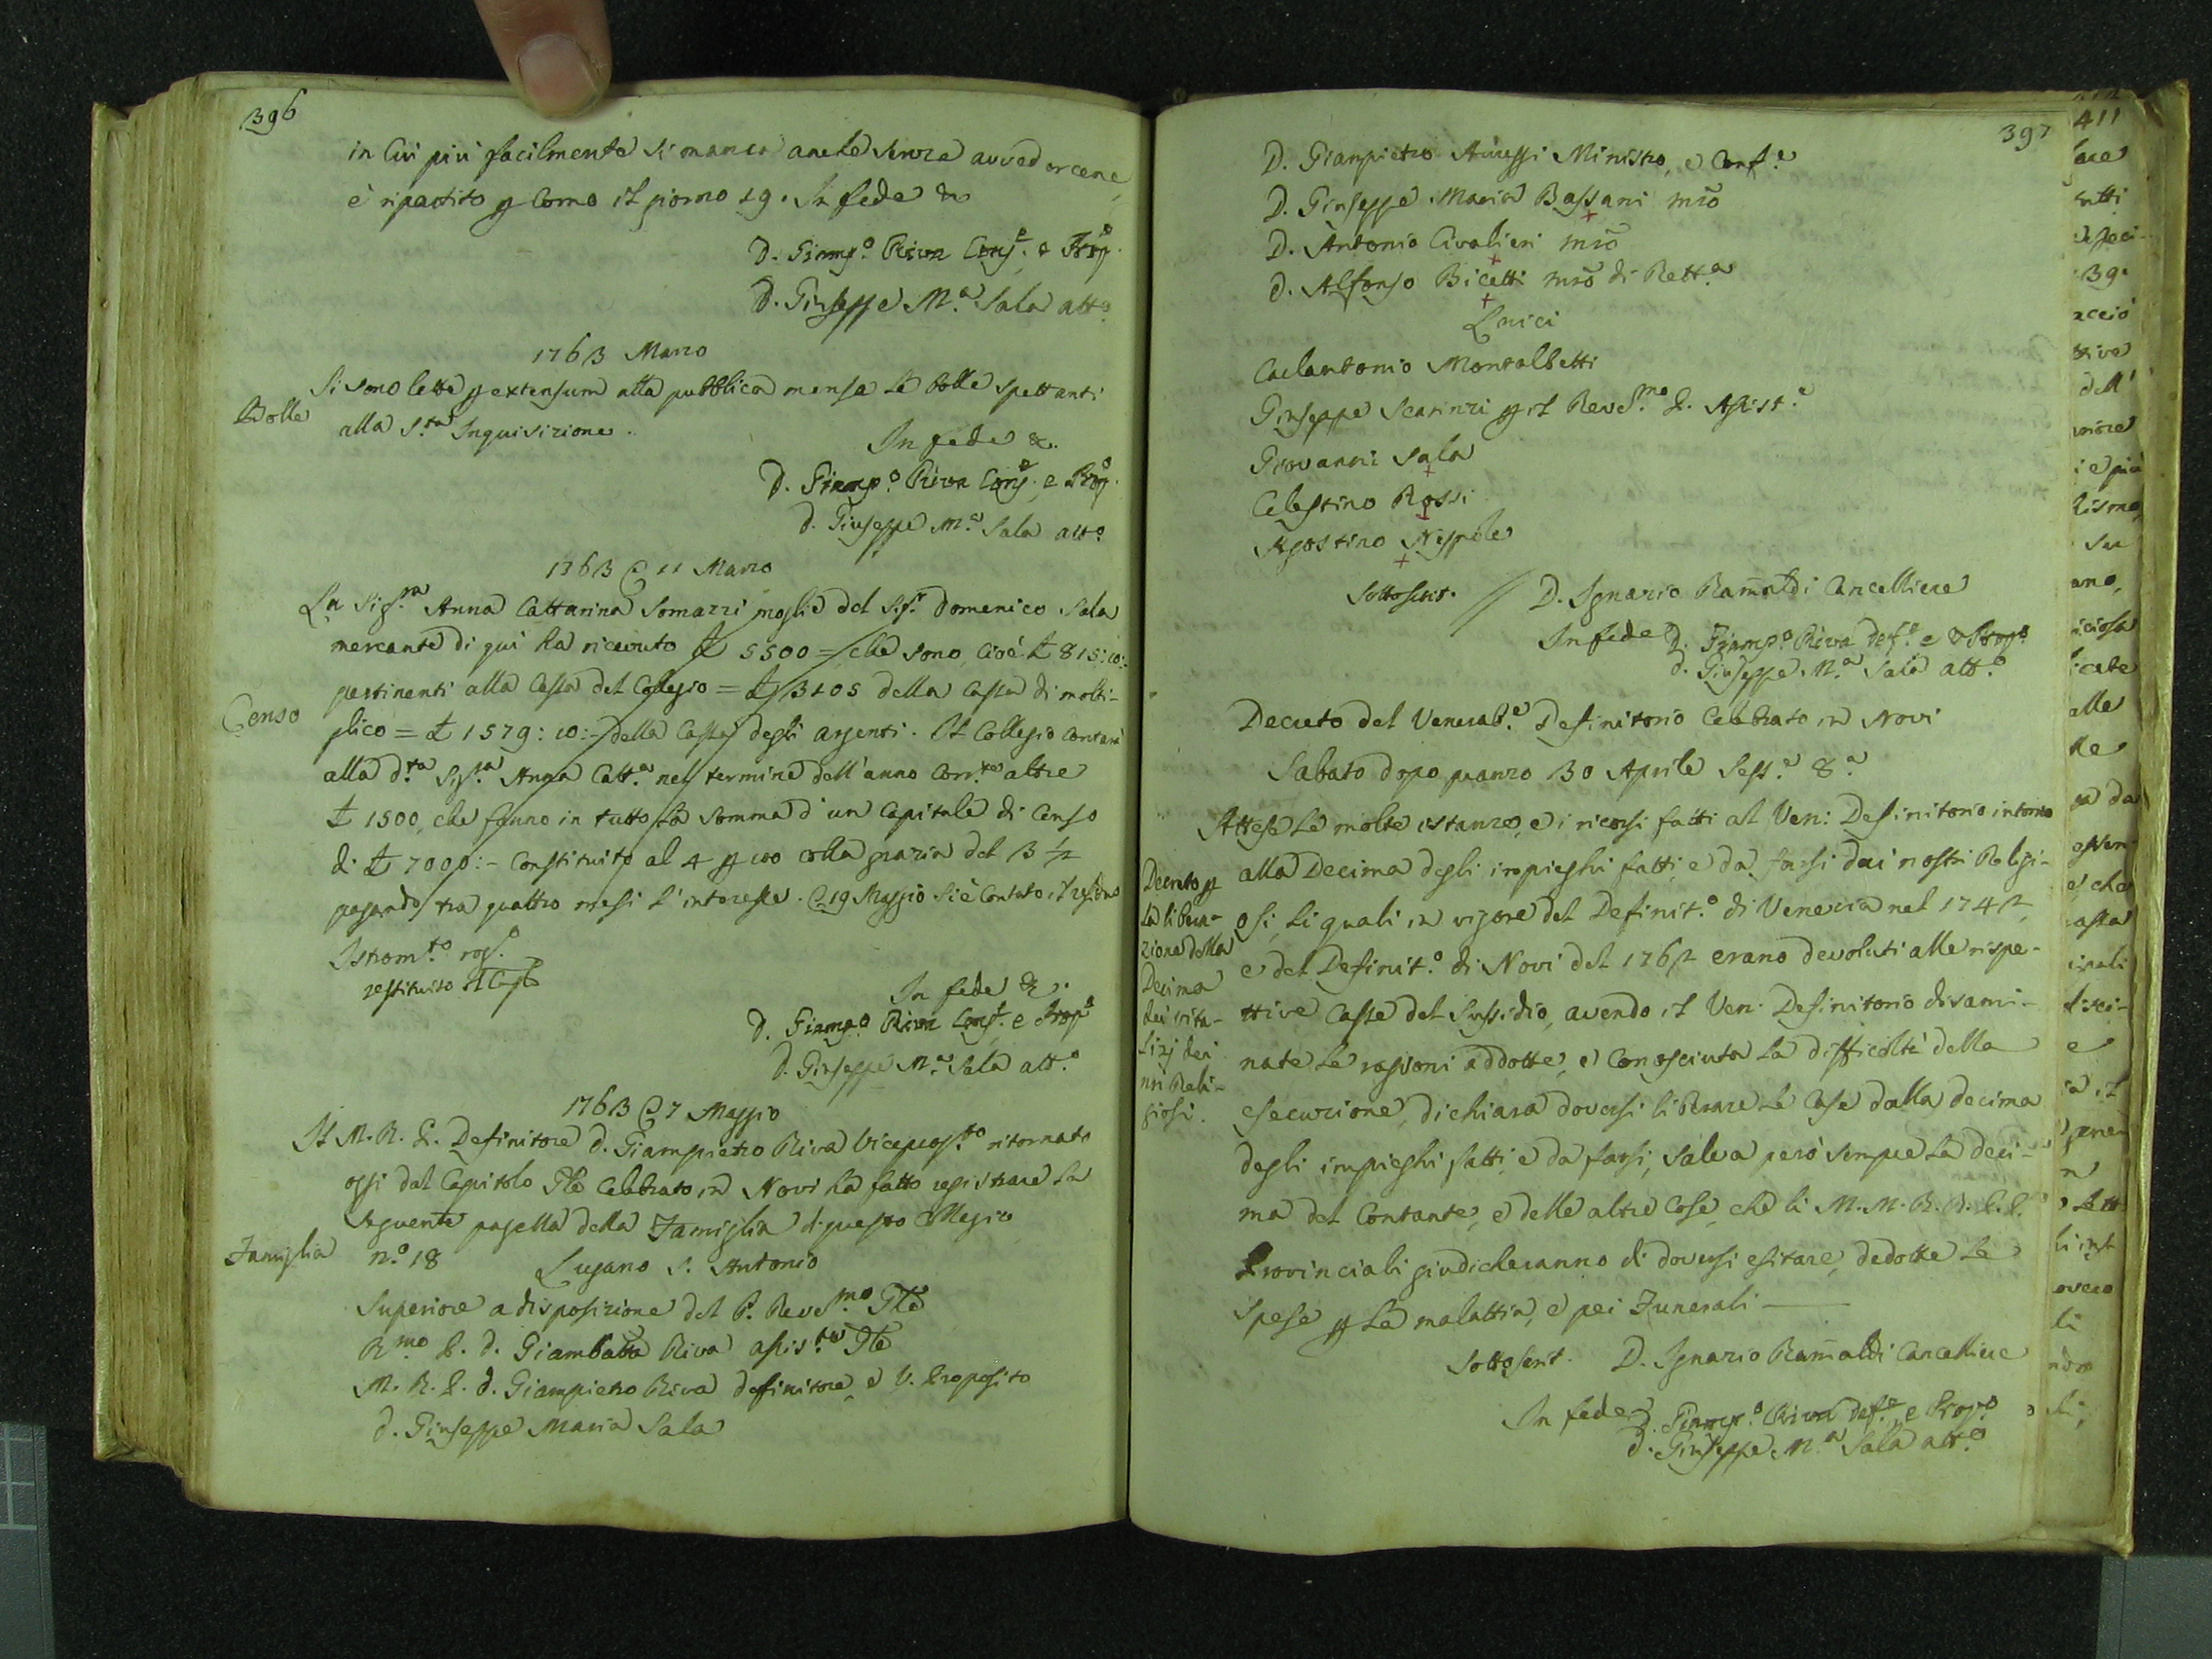 396
in cui più facilmente si manca anche senza avvedercene,
è ripartito p Como il giorno 29. In fede &
D. Giamp.o Riva Cons.e e Prop.o
D. Giuseppe M.a Sala att.o
1763 Marzo
Bolle
Si sono lette p extensum alla pubblica mensa le bolle spettanti
alla S.ta Inquisizione.
In fede &.
D. Giamp.o Riva Cons.e e Prop.o
d. Giuseppe M.a Sala att.o
1763 @ 11 Marzo
Censo
La Sig.ra Anna Cattarina Somazzi moglie del Sig.r Domenico Sala
mercante di qui ha ricevuto £ 5500 = che sono, cioè £ 815:10:-
pertinenti alla Cassa del Collegio = £ 3105 della Cassa di molti-
plico = £ 1579:10:- della Cassa degli argenti. Il Collegio contarà
alla d.ta Sig.ra Anna Catt.a nel termine dell'anno corr.te altre
£ 1500, che fanno in tutto la somma d'un Capitale di Censo
di £ 7000:- Constituito al 4 p 100 colla grazia del 3 1/2
pagando tra quattro mesi l'interesse. @ 19 Maggio si è contato il residuo
Istrom.to rog.o
restituito il Cap.le
In fede &.
D. Giamp.o Riva Cons.e e Prop.o
D. Giuseppe M.a Sala att.o
1763 @ 7 Maggio
Il M. R. P. Definitore D. Giampietro Riva Vicepros.to ritornato
oggi dal Capitolo Gle celebrato in Novi ha fatto registrare la
seguente pagella della Famiglia di questo Collegio
Famiglia
n.o 18 Lugano S. Antonio
Superiore a disposizione del P. Rev.mo Gle
R.mo P. d. Giambatta Riva assis.te Gle
M. R. P. d. Giampietro Riva definitore, e V. Proposito
d. Giuseppe Maria Sala
397
D. Giampietro Ministro, e Conf.e
D. Giuseppe Maria Bassani mro
D. Antonio Civalieri mro
d. Alfonso Bicetti mro di Rett.a
Laici
Carlantonio Montalbetti
Giuseppe Scarinzi p il Rev.mo P. Assist.e
Giovanni Sala
Celestino Rossi
Agostino Nespole
Sottoscrt. // D. Ignazio Ramaldi Cancelliere
In fede D. Giamp.o Riva Def.e e Prop.o
d. Giuseppe M.a Sala att.o
Decreto del Venerab.e Definitorio celebrato in Novi
Sabato dopo pranzo 30 Aprile Sess.e 8.a
Decreto p
la libera-
zione della
Decima
dei vita-
lizj dei
nri Reli-
giosi.
Attese le molte istanze, e i ricorsi fatti al Ven: Definitorio intorno
alla Decima degli impieghi fatti e da farsi dai nostri Religi-
osi, li quali in vigore del Definit.o di Venezia nel 1742,
e del Definit.o di Novi del 1762 erano devoluti alle rispe-
ttive Casse del Sussidio, avendo il Ven: Definitorio disami-
nate le ragioni addotte, e conosciuta la difficoltà della
esecuzione, dichiara doversi liberare le Case dalla decima
degli impieghi fatti, e da farsi, salva però sempre la deci-
ma del Contante, e delle altre Cose, che li M. M. R. R. P. P.
Provinciali giudicheranno di doversi esitare, dedotte le
spese p la malattia, e pei Funerali
Sottoscrt. D. Ignazio Ramaldi Cancelliere
In fede D. Giamp.o Riva Def.e, e Prop.o
d. Giuseppe M.a Sala att.o
411